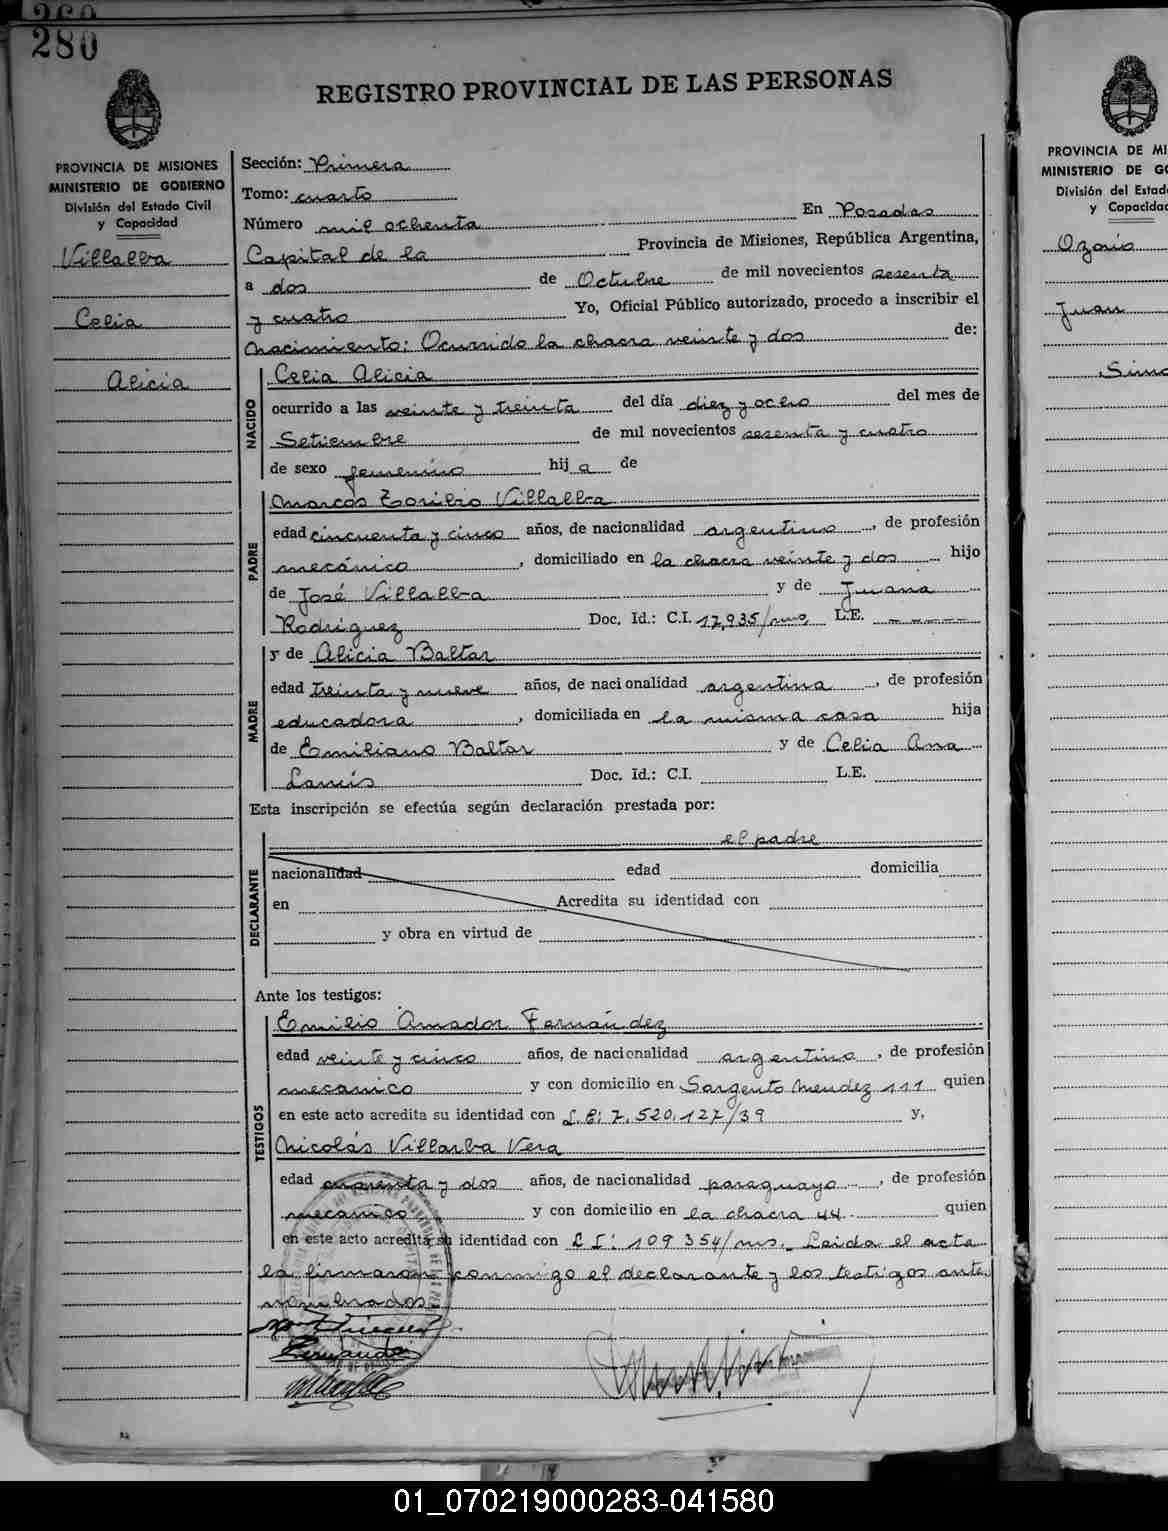 260
280
REGISTRO PROVINCIAL DE LAS PERSONAS
PROVINCIA DE MISIONES
MINISTERIO DE GOBIERNO
División del Estado Civil
y Capacidad
Villalba
Celia
Alicia
Sección: Primera
Tomo: cuarto
Número mil ochenta En Posadas
Capital de la Provincia de Misiones, República Argentina,
a dos de Octubre de mil novecientos sesenta
y cuatro Yo, Oficial Público autorizado, procedo a inscribir el
nacimiento: Ocurrido la chacra veinte y dos de:
NACIDO
Celia Alicia
ocurrido a las veinte y treinta del día diez y ocho del mes de
Setiembre de mil novecientos sesenta y cuatro
de sexo femenino hij a de
PADRE
Marcos Toribio Villalba
edad cincuenta y cinco años, de nacionalidad argentino, de profesión
mecánico, domiciliado en la chacra veinte y dos hijo
de José Villalba y de Juana
Rodriguez Doc. Id.: C.I. 17,935/mns, L.E. ------
MADRE
y de Alicia Baltar
edad treinta y nueve años, de nacionalidad argentina, de profesión
educadora, domiciliada en la misma casa hija
de Emiliano Baltar y de Celia Ana
Doc. Id.: C.I. L.E.
Esta inscripción se efectúa según declaración prestada por:
DECLARANTE
el padre
nacionalidad edad domicilia
en Acredita su identidad con
y obra en virtud de
Ante los testigos:
TESTIGOS
Emilio Amador Fernández
edad veinte y cinco años, de nacionalidad argentino, de profesión
mecanico y con domicilio en Sargento Mendez 111 quien
en este acto acredita su identidad con L.E: 7.520.127/39 y,
Nicolás Villarba Vera
edad cuarenta y dos años, de nacionalidad paraguayo, de profesión
mecanico y con domicilio en la chacra 44. quien
en este acto acredita su identidad con C I: 109 354/mns. Leida el acta
la firmaron conmigo el declarante y los testigos ante
nombrados.
Fernandez
PROVINCIA DE MI
MINISTERIO DE GO
División del Estad
y Capacidad
Ozorio
Juan
01_070219000283-041580